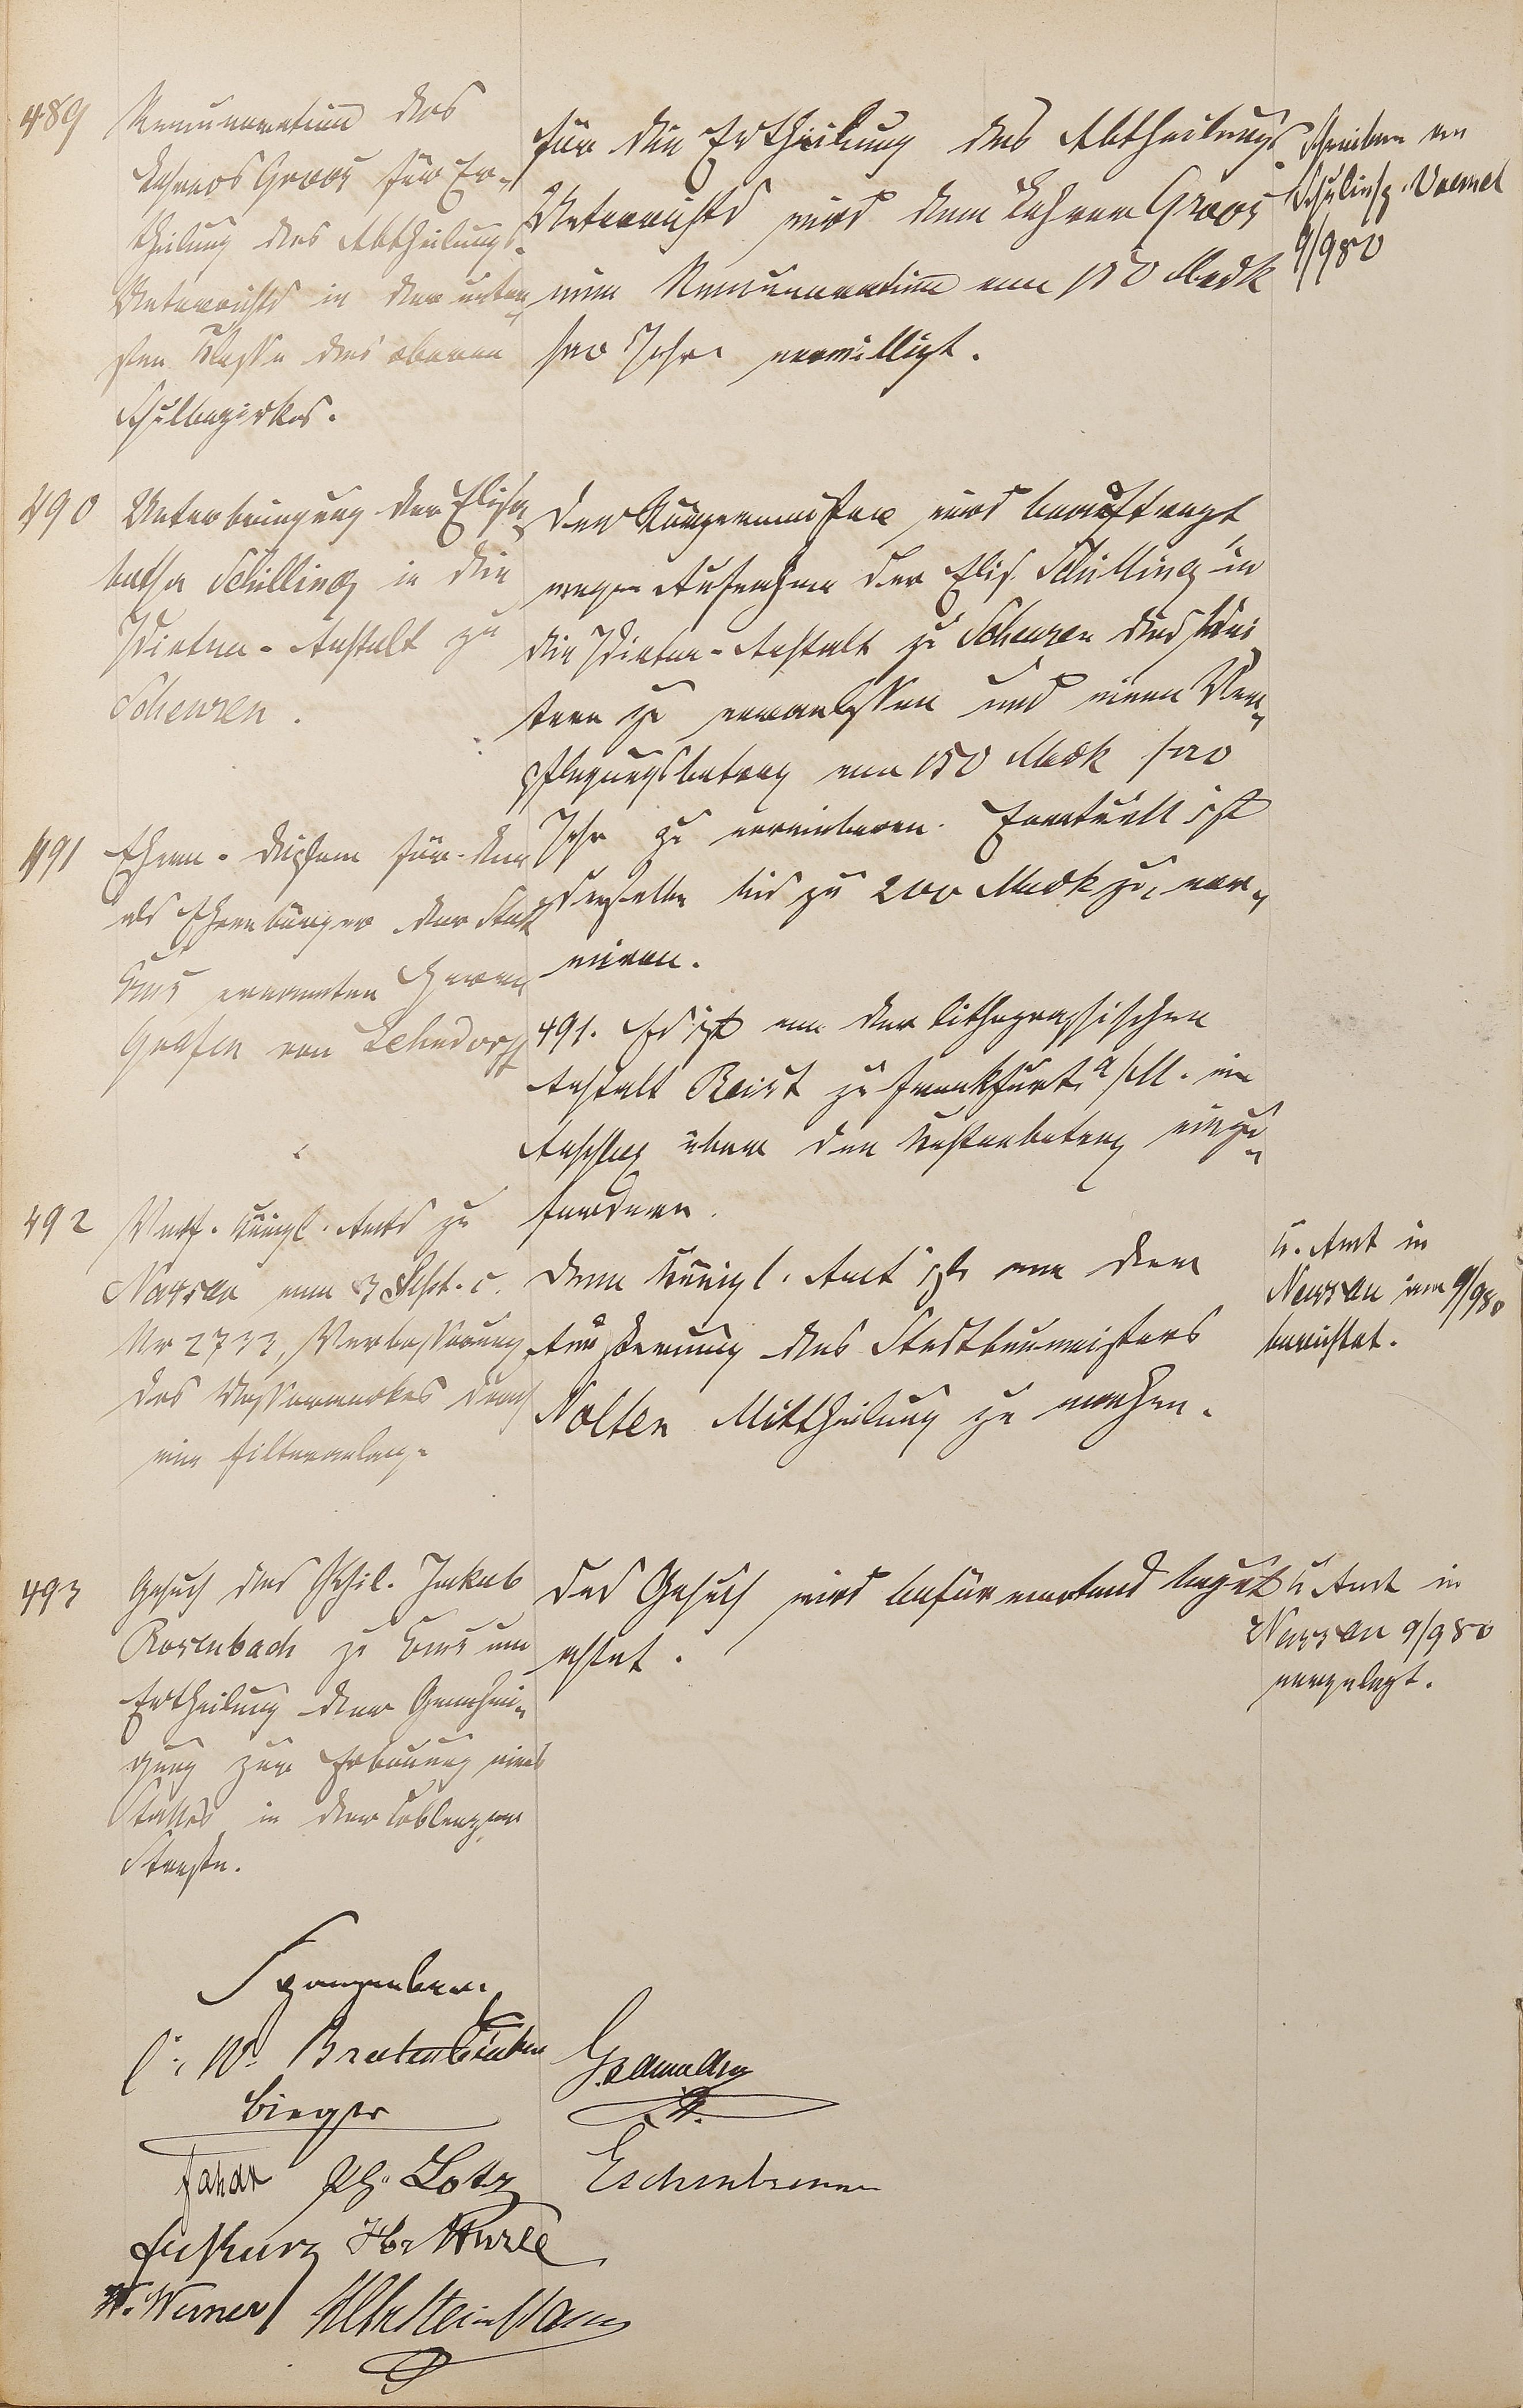 489
Remuneration des
Lehrers Groos für Er-
theilung des Abtheilungs-
Unterrichts in der unter-
sten Klasse des oberen
Schulbezirkes.
Für die Ertheilung des Abtheilungs
Unterrichts wird dem Lehrer Groos
eine Remuneration von 150 Mark
pro Jahr verwilligt.
Schreiben an
Schulinsp. Vomel
9/9 80
490
Unterbringung der Elisa-
betha Schilling in die
Idioten-Anstalt zu
Scheuren.
Der Bürgermeister wird beauftragt
wegen Aufnahme der Elis. Schilling in
die Idioten-Anstalt zu Scheuren das Wei-
tere zu veranlassen und einen Ver-
pflegungsbetrag von 150 Mark pro
Jahr zu vereinbaren. Eventuell ist
derselbe bis zu 200 Mark zu nor-
miren.
491
Ehren-Diplom für den
als Ehrenbürger der Stadt
Ems ernannten Herrn
Grafen von Lehndorff
491. Es ist von der lithographischen
Anstalt Reist zu Frankfurt a/M. ein
Anschlag über den Kostenbetrag einzu-
fordern.
492
Verf. Königl. Amts zu
Nassau vom 3 Sept. c.
Nr 2733, Verbesserung
des Wasserwerkes durch
eine Filteranlage
Dem Königl. Amt ist von der
Äußerung des Stadtbaumeisters
Nolten Mittheilung zu machen.
K. Amt in
Nassau am 9/9 80
berichtet.
493
Gesuch des Phil. Jakob
Rosenbach zu Ems um
Ertheilung der Genehmi-
gung zur Erbauung eines
Stalles in der Coblenzer
Straße.
Das Gesuch wird befürwortend begut-
achtet.
K. Amt in
Nassau 9/9 80
vorgelegt.
Spangenberg
C. W. Breitenbücher
Bieger
Ph. Lotz
Eschenbrenner
W. Werner